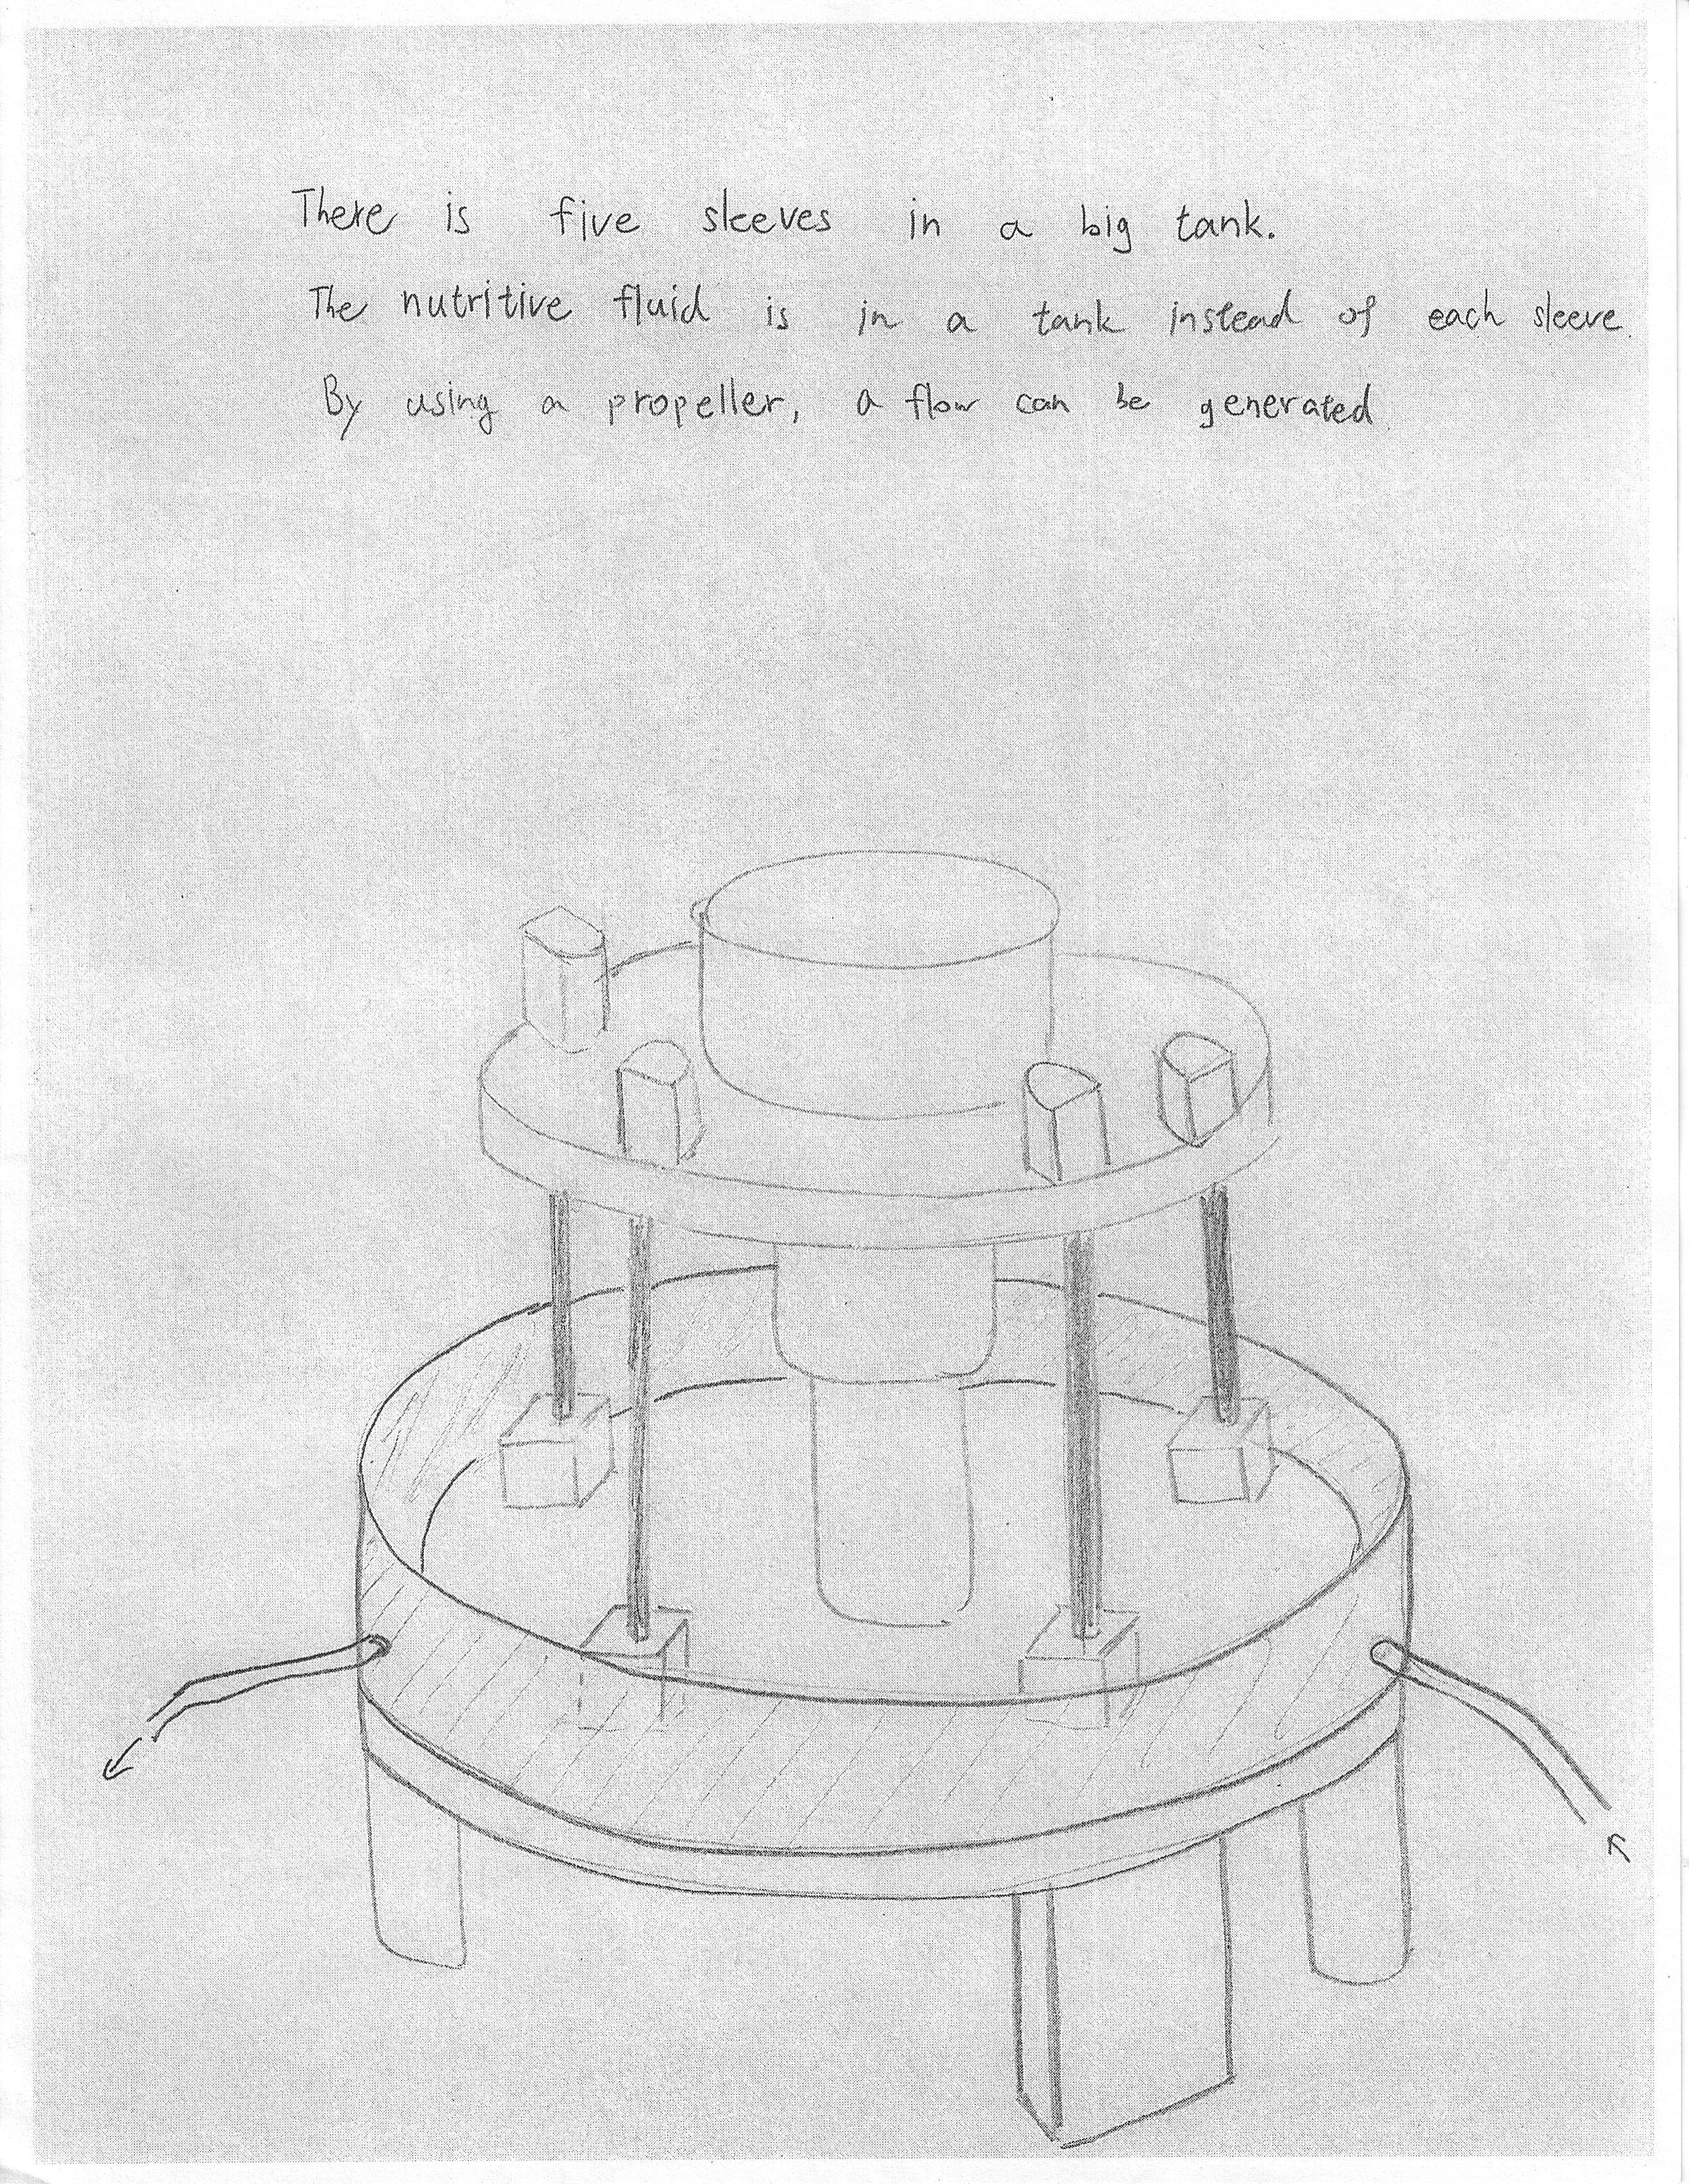 There is five sleeves in a big tank.
The nutritive fluid is in a tank instead of each sleeve.
By using a propeller, a flow can be generated